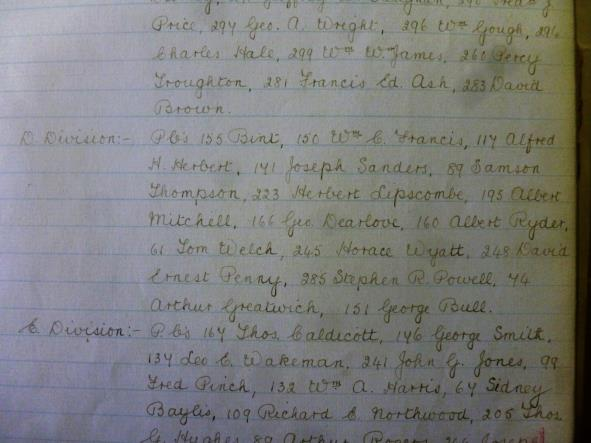 Price, 294 Geo. A. Wright, 296 Wm Gough, 296
Charles Hale, 299 Wm W. James, 260 Percy
Troughton, 281 Francis Ed. Ash, 283 David
Brown.
D Division:- P.C's 155 Bint, 150 Wm C. Francis, 117 Alfred
H. Herbert, 141 Joseph Sanders, 89 Samson
Thompson, 223 Herbert Lipscombe, 195 Albert
Mitchell, 166 Geo. Dearlove, 160 Albert Ryder,
61 Tom Welch, 245 Horace Wyatt, 248 David
Ernest Penny, 285 Stephen R. Powell, 74
Arthur Greatwich, 151 George Bull.
E Division:- P.C's 167 Thos. Caldicott, 146 George Smith,
137 Leo C. Wakeman, 241 John G. Jones, 99
Fred Pinch, 132 Wm A. Harris, 67 Sidney
Baylis, 109 Richard C. Northwood, 205 Thos.
G. Hughes, 89 Arthur Rogers,